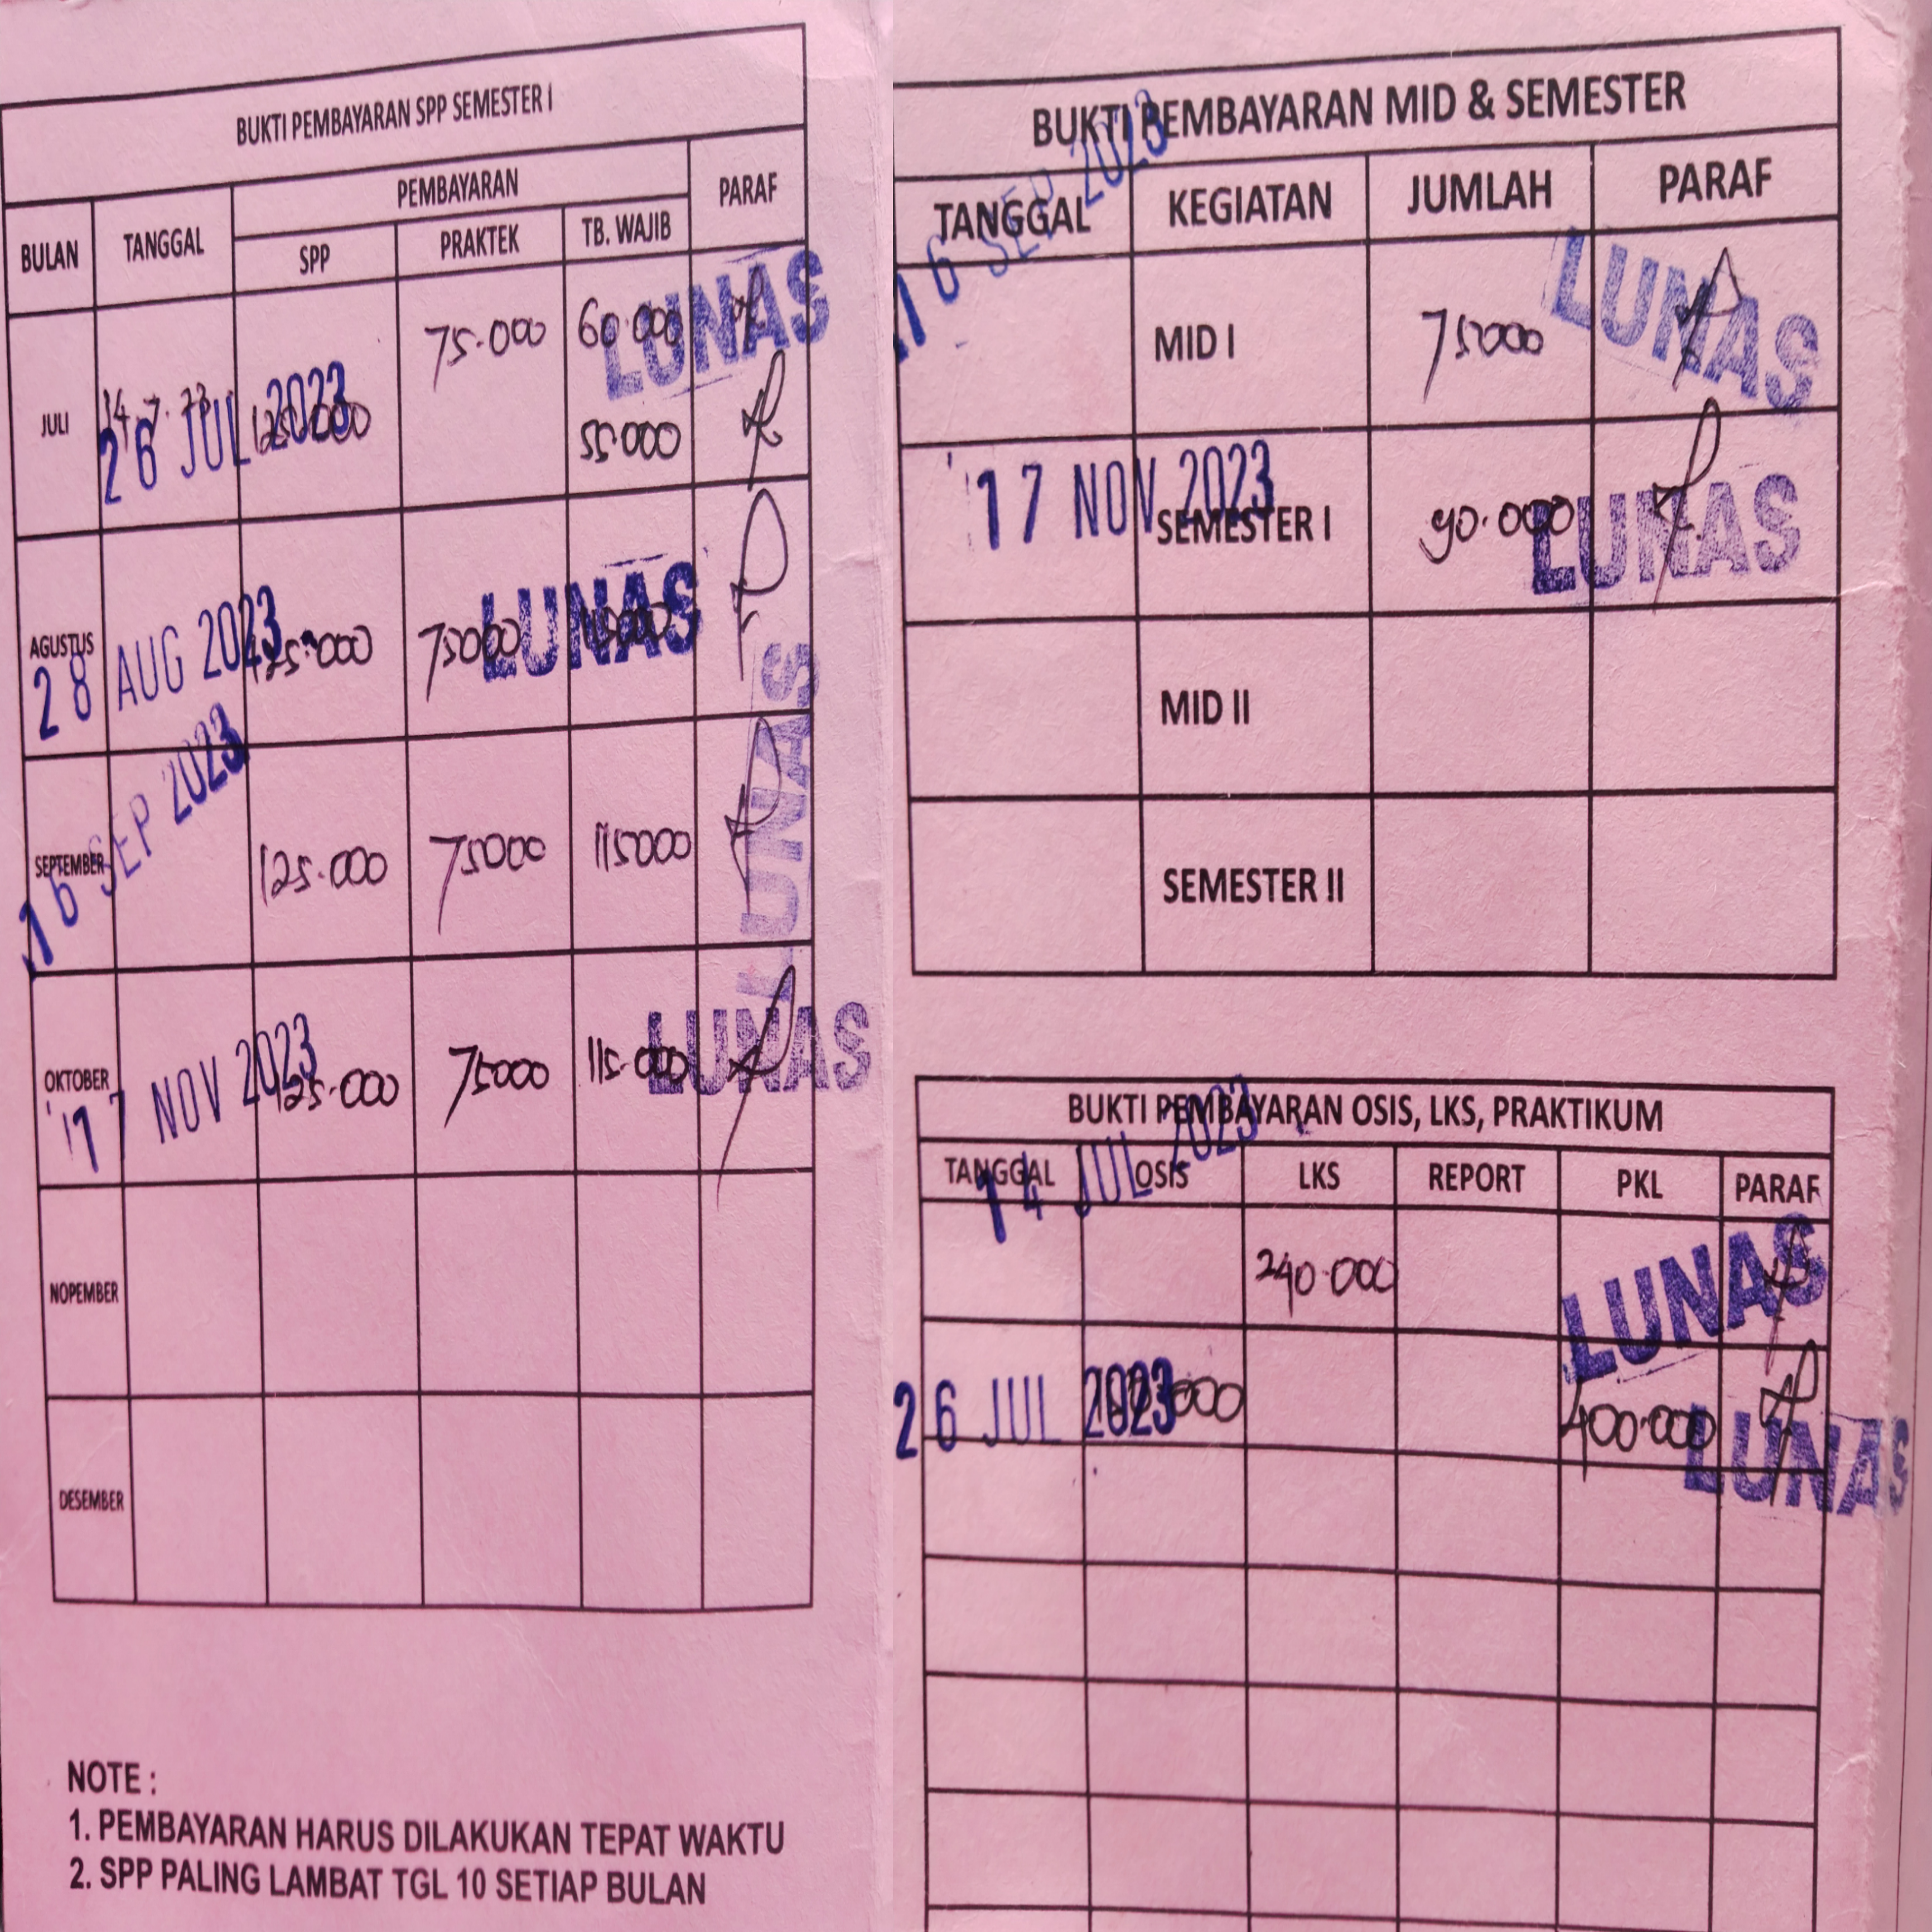 BUKTI PEMBAYARAN SPP SEMESTER I
BULAN TANGGAL PEMBAYARAN PARAF
SPP PRAKTEK TB. WAJIB
75.000 60.000 LUNAS
JULI 14.7.23 26 JUL 2023 125.000 55.000
AGUSTUS 28 AUG 2023 125.000 75000 LUNAS
SEPTEMBER 16 SEP 2023 125.000 75000 115000 LUNAS
OKTOBER 17 NOV 2023 125.000 75000 115.000 LUNAS
NOPEMBER
DESEMBER
NOTE :
1. PEMBAYARAN HARUS DILAKUKAN TEPAT WAKTU
2. SPP PALING LAMBAT TGL 10 SETIAP BULAN
BUKTI PEMBAYARAN MID & SEMESTER
TANGGAL KEGIATAN JUMLAH PARAF
16 SEP 2023 MID I 75000 LUNAS
17 NOV 2023 SEMESTER I 90.000 LUNAS
MID II
SEMESTER II
BUKTI PEMBAYARAN OSIS, LKS, PRAKTIKUM
TANGGAL OSIS LKS REPORT PKL PARAF
14 JUL 2023 240.000 LUNAS
26 JUL 2023 400.000 LUNAS